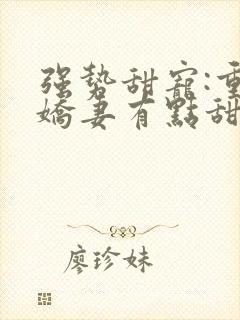 强势甜寵:重
嬌妻有點甜
廖珍妹